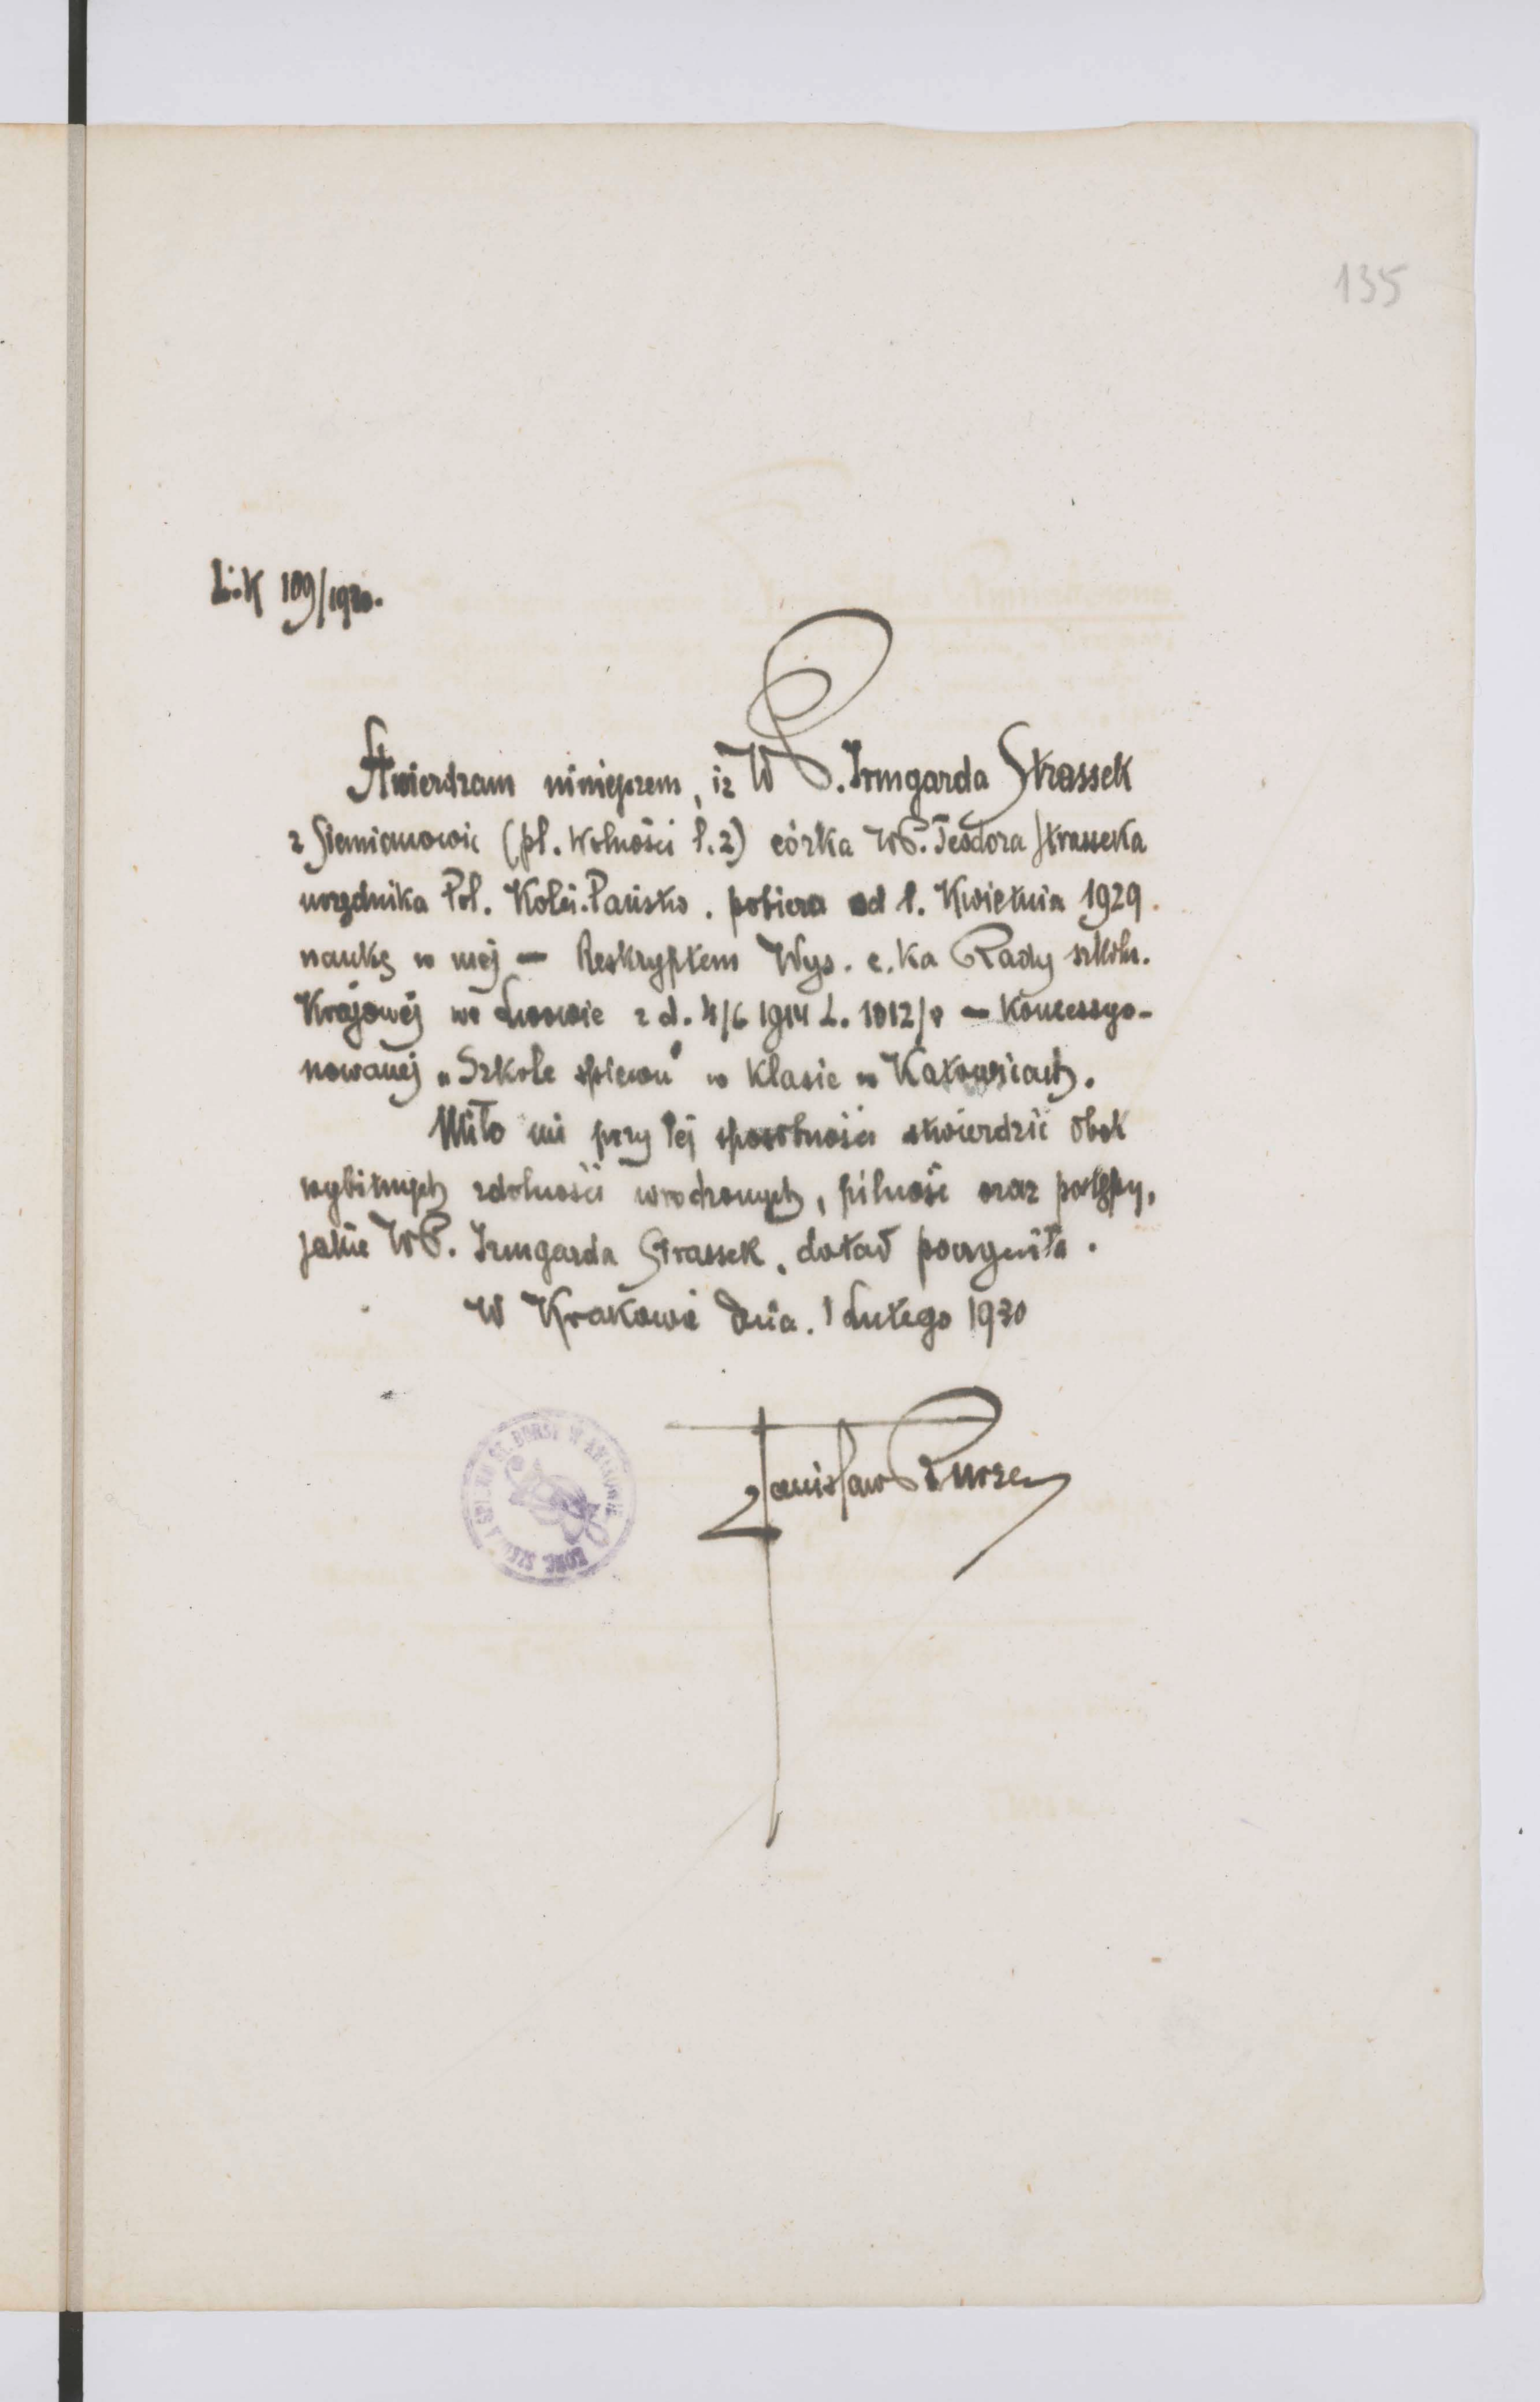 135
L:K 109/1930.
Stwierdzam niniejszem, iż WP. Irmgarda Strassek
z Siemianowic (pl. Wolności l. 2) córka WP. Teodora Strasseka
urzędnika Pol. Kolei. Państw. pobiera od 1. Kwietnia 1929.
naukę w mej — Reskryptem Wys. c. ka Rady szkoln.
Krajowej we Lwowie z d. 4/6 1914 L. 1012/ — Koncessyo-
nowanej „Szkole śpiewu" w klasie w Katowicach.
Miło mi przy tej sposobności stwierdzić obok
wybitnych zdolności wrodzonych, pilność oraz postępy,
jakie WP. Irmgarda Strassek, dotąd poczyniła.
W Krakowie dnia. 1 Lutego 1930
Stanisław Bursa
KONC. SZKOŁA ŚPIEWU ST. BURSY W KRAKOWIE